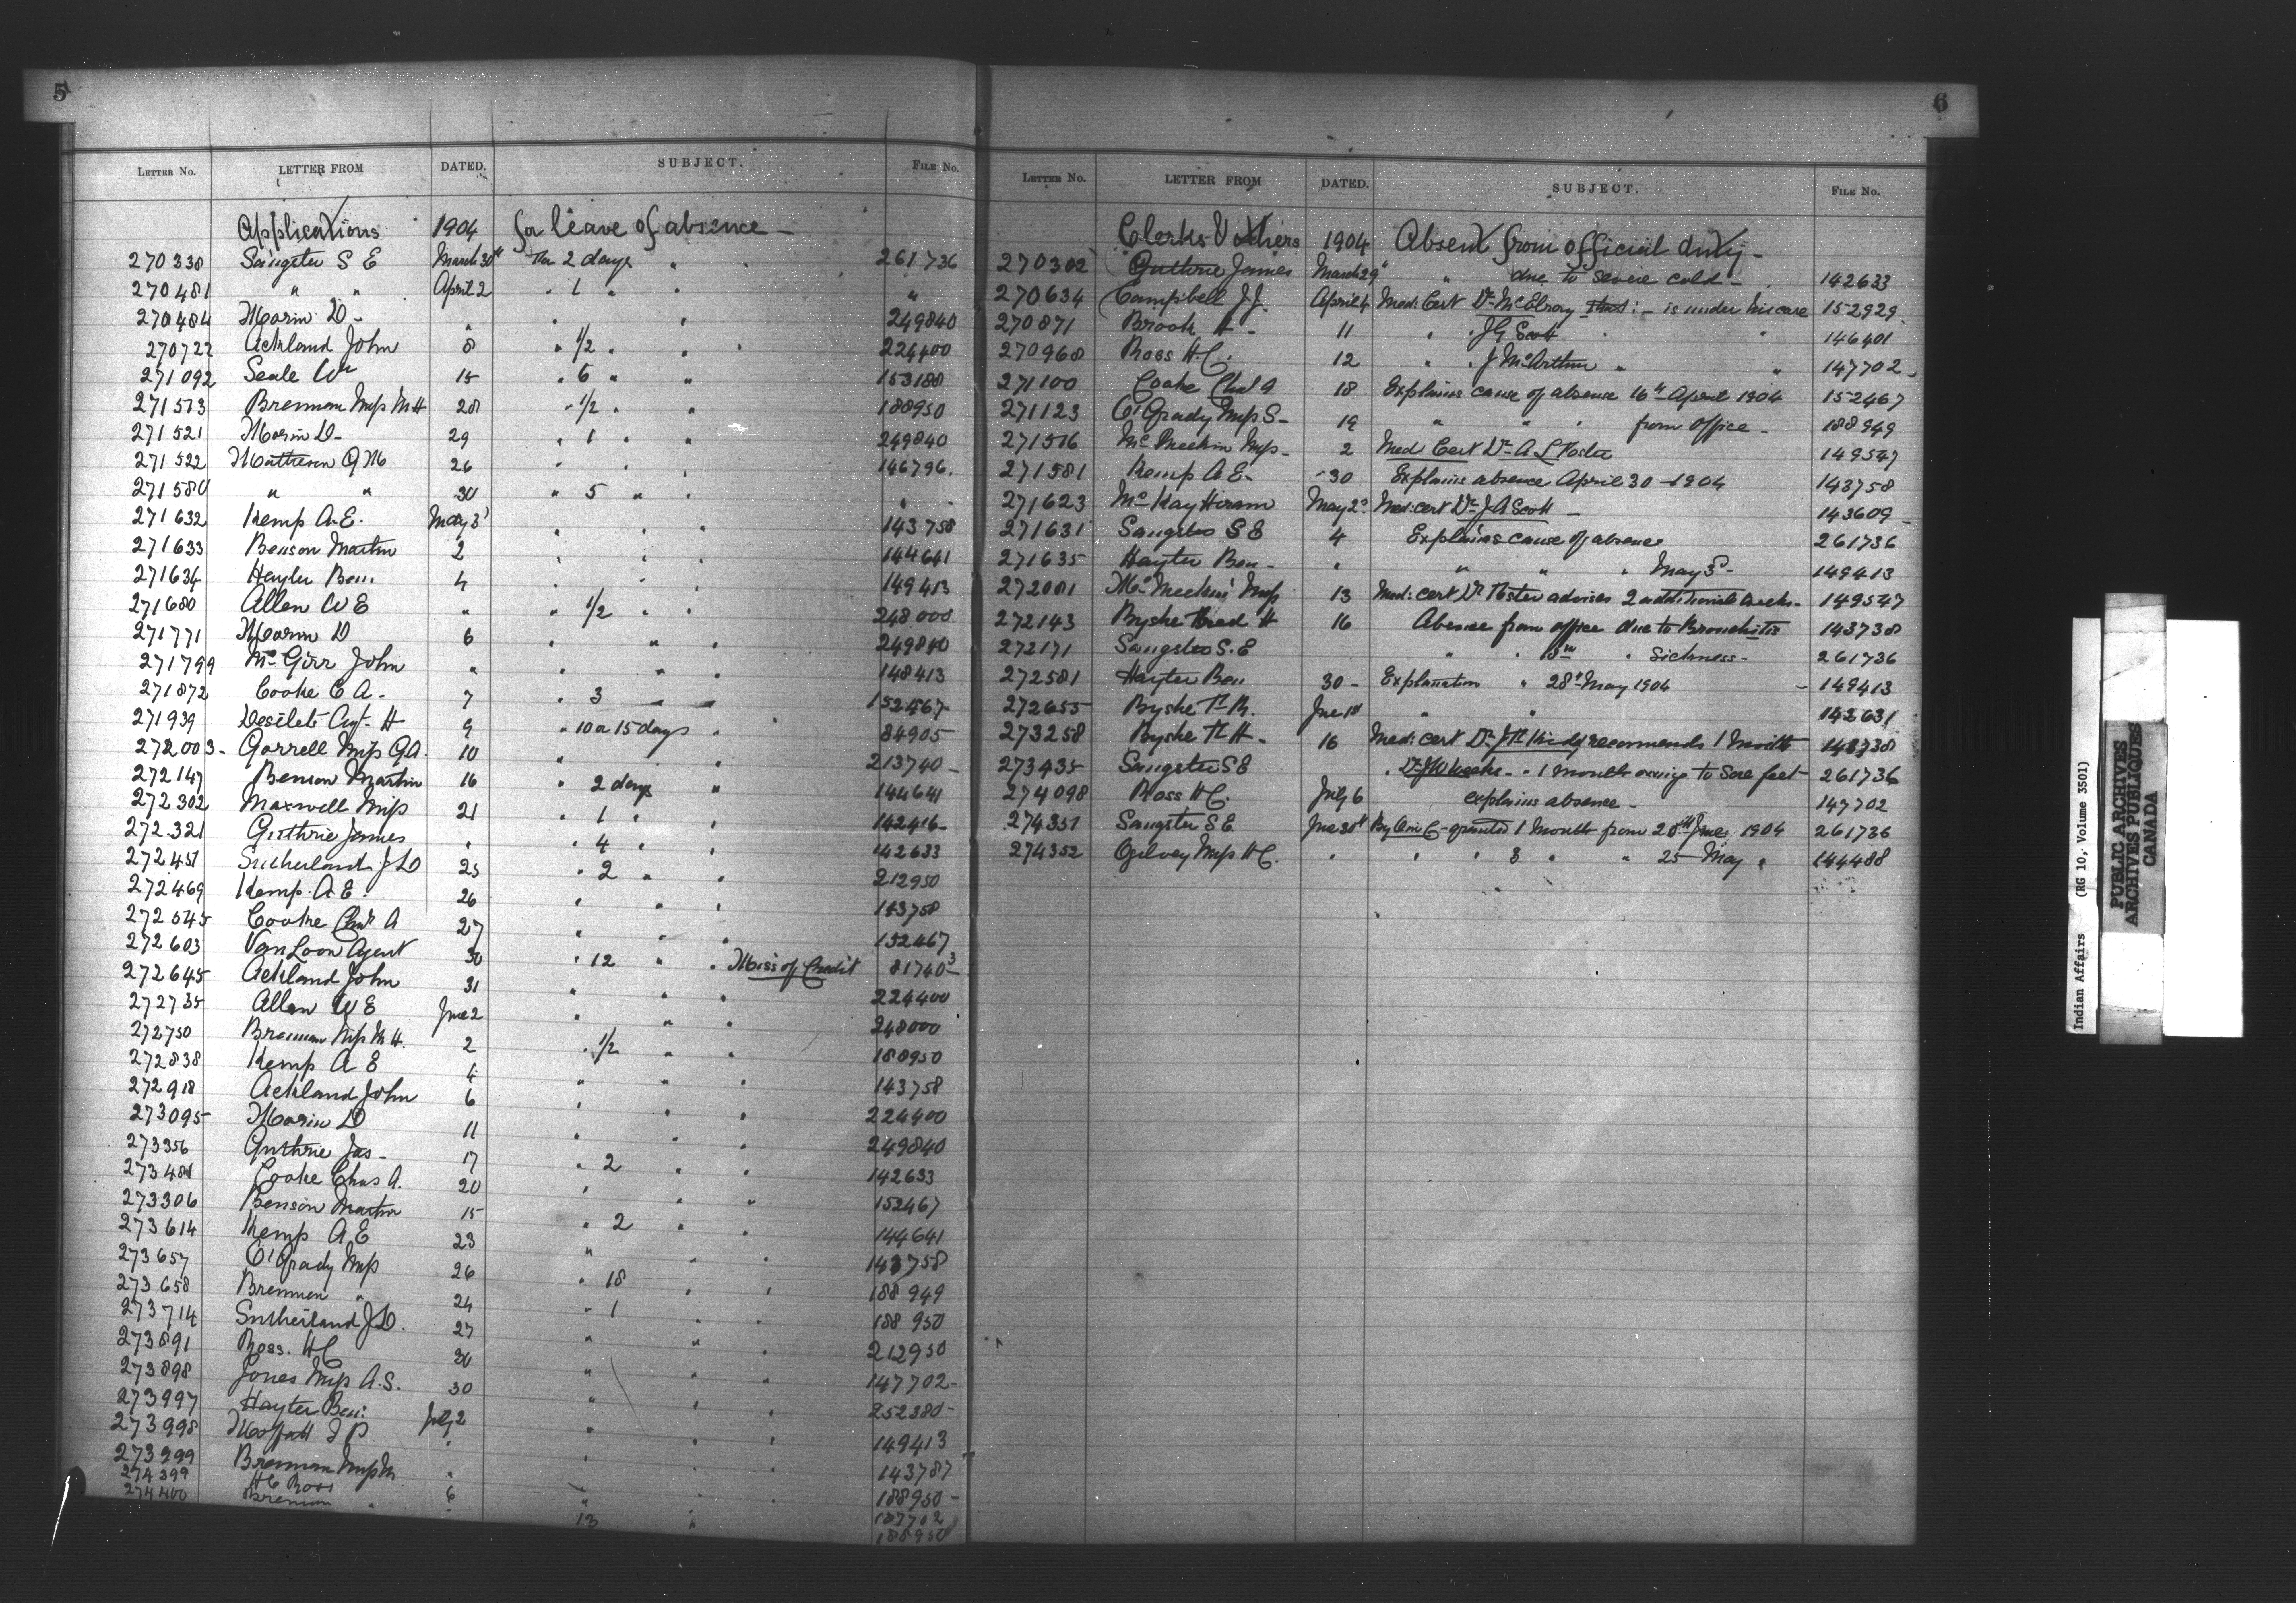 5
LETTER NO. LETTER FROM DATED. SUBJECT. FILE NO.
Applications 1904 for leave of absence -
270338 Sangster S E March 30th For 2 days " 261736
270481 " " April 2 " 1 " " "
270484 Morin D - " " " 249840
270722 Ackland John 8 " 1/2 " " 224400
271092 Seale Wm 15 " 6 " " 153188
271513 Brennan Miss M H 28 " 1/2 " " 188950
271521 Morin D - 29 " 1 " " 249840
271522 Matheson G M 26 " " 146796.
271580 " " 30 " 5 " " "
271632 Kemp A.E. May 3 " " " 143758
271633 Benson Martin 2 " " " 144641
271634 Hayter Ben. 4 " " " 149413
271680 Allen W E " " 1/2 " " 248000
271771 Morin D 6 " " " 249840
271799 McGirr John " " " " 148413
271872 Cooke C A - 7 " 3 " " 152467
271939 Desilets Agt. H 9 " 10 a 15 days " 84905
272003 - Gorrell Miss G A. 10 " " " 213740 -
272147 Benson Martin 16 " 2 days " 144641
272302 Maxwell Miss 21 " 1 " " 142416
272321 Guthrie James " " 4 " " 142633
272451 Sutherland J D 25 " 2 " " 212950
272469 Kemp. A E. 26 " " " 143758
272545 Cooke Chas A 27 " " " 152467
272603 Van Loon Agent 30 " 12 " " Miss: of Credit 81740-3
272645 Ackland John 31 " " " 224400
272735 Allen W E June 2 " " " 248000
272750 Brennan Miss M H. 2 " 1/2 " " 188950
272838 Kemp A E 4 " " " 143758
272918 Ackland John 6 " " " 224400
273095 Morin D 11 " " " 249840
273356 Guthrie Jas - 17 " 2 " " 142633
273481 Cooke Chas A. 20 " " " 152467
273306 Benson Martin 15 " 2 " " 144641
273614 Kemp A E 23 " " " 143758
273657 O'Grady Miss 26 " 18 " " 188949
273658 Brennan " 24 " 1 " " 188950
273714 Sutherland J D. 27 " " " 212950
273891 Ross. H C 30 " " " 147702 -
273898 Jones Miss A.S. 30 " " " 252380 -
273997 Hayter Ben: July 2 " " " 149413
273998 Moffatt T P " " " " 143787
273999 Brennan Miss M " " " " 188950 -
274399 H C Ross 6 " " " 147702
274400 Brennan " " 13 " 188950
6
LETTER NO. LETTER FROM DATED. SUBJECT. FILE NO.
Clerks & others 1904 Absent from official duty -
270302 Guthrie James March 29 " due to severe cold - 142633
270634 Campbell J J. April 4 Med: Cert Dr McElroy : - is under his care 152929
270871 Brook A - 11 " " J G Scott " " 146401
270968 Ross H.C. 12 " " J McArthur " " 147702 -
271100 Cooke Chas A 18 Explains cause of absence 16th April 1904 152467
271123 O'Grady Miss S - 19 " " " from office - 188949
271516 McMeekin Miss - 2 Med Cert Dr A L Foster 149547
271581 Kemp A E - 30 Explains absence April 30 - 1904 143758
271623 McKay Hiram May 2 Med: cert Dr J A Scott - 143609 -
271631 Sangster S E 4 Explains cause of absence 261736
271635 Hayter Ben - " " " " May 3 - 149413
272081 McMeekin Miss 13 Med: cert Dr Foster advises 2 additional weeks - 149547
272143 Byshe Fred H 16 Absence from office due to Bronchitis 143738
272171 Sangster S. E " " " Sickness - 261736
272581 Hayter Ben 30 - Explanation " 28th May 1904 - 149413
272655 Byshe F. R. June 1st " " 142631
273258 Byshe F H - 16 Med: cert Dr J F Kidd recommends 1 month 143738
273435 Sangster S E " Dr J W Weeks - " 1 month owing to Sore feet - 261736
274098 Ross H C. July 6 explains absence - 147702
274351 Sangster S E June 30th By O in C - granted 1 Month from 28th June 1904 261736
274352 Ogilvey Miss H C. " " " 3 " " 25 May " 144488
Indian Affairs (RG 10, Volume 3501)
PUBLIC ARCHIVES
ARCHIVES PUBLIQUES
CANADA